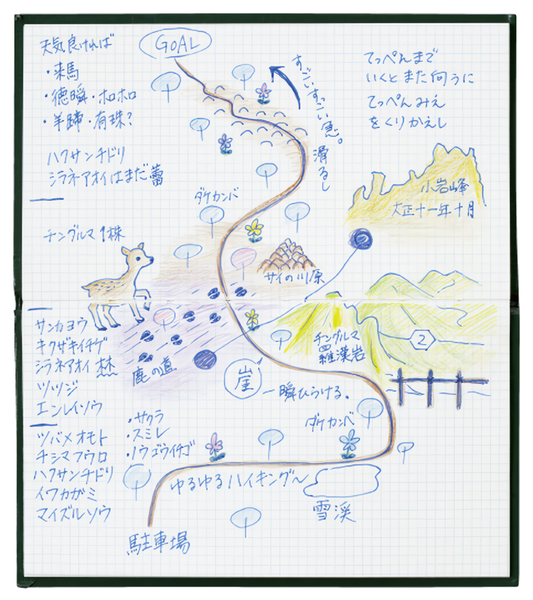 天気良ければ
・来馬
・徳瞬・ホロホロ
・羊蹄・有珠?
ハクサンチドリ
シラネアオイはまだ蕾
チングルマ1株
サンカヨウ
キクザキイチゲ
シラネアオイ
ツツジ
エンレイソウ
ツバメオモト
チシマフウロ
ハクサンチドリ
イワカガミ
マイズルソウ
GOAL
すごいすごい急。滑るし
てっぺんまで
いくとまた向うに
てっぺんみえ
をくりかえし
小岩峰
大正十一年十月
ダケカンバ
サイの川原
鹿の道
チングルマ
四
羅漢岩
2
崖
一瞬ひらける。
ダケカンバ
・サクラ
・スミレ
・ノウゴウイチゴ
ゆるゆるハイキング〜
雪渓
駐車場